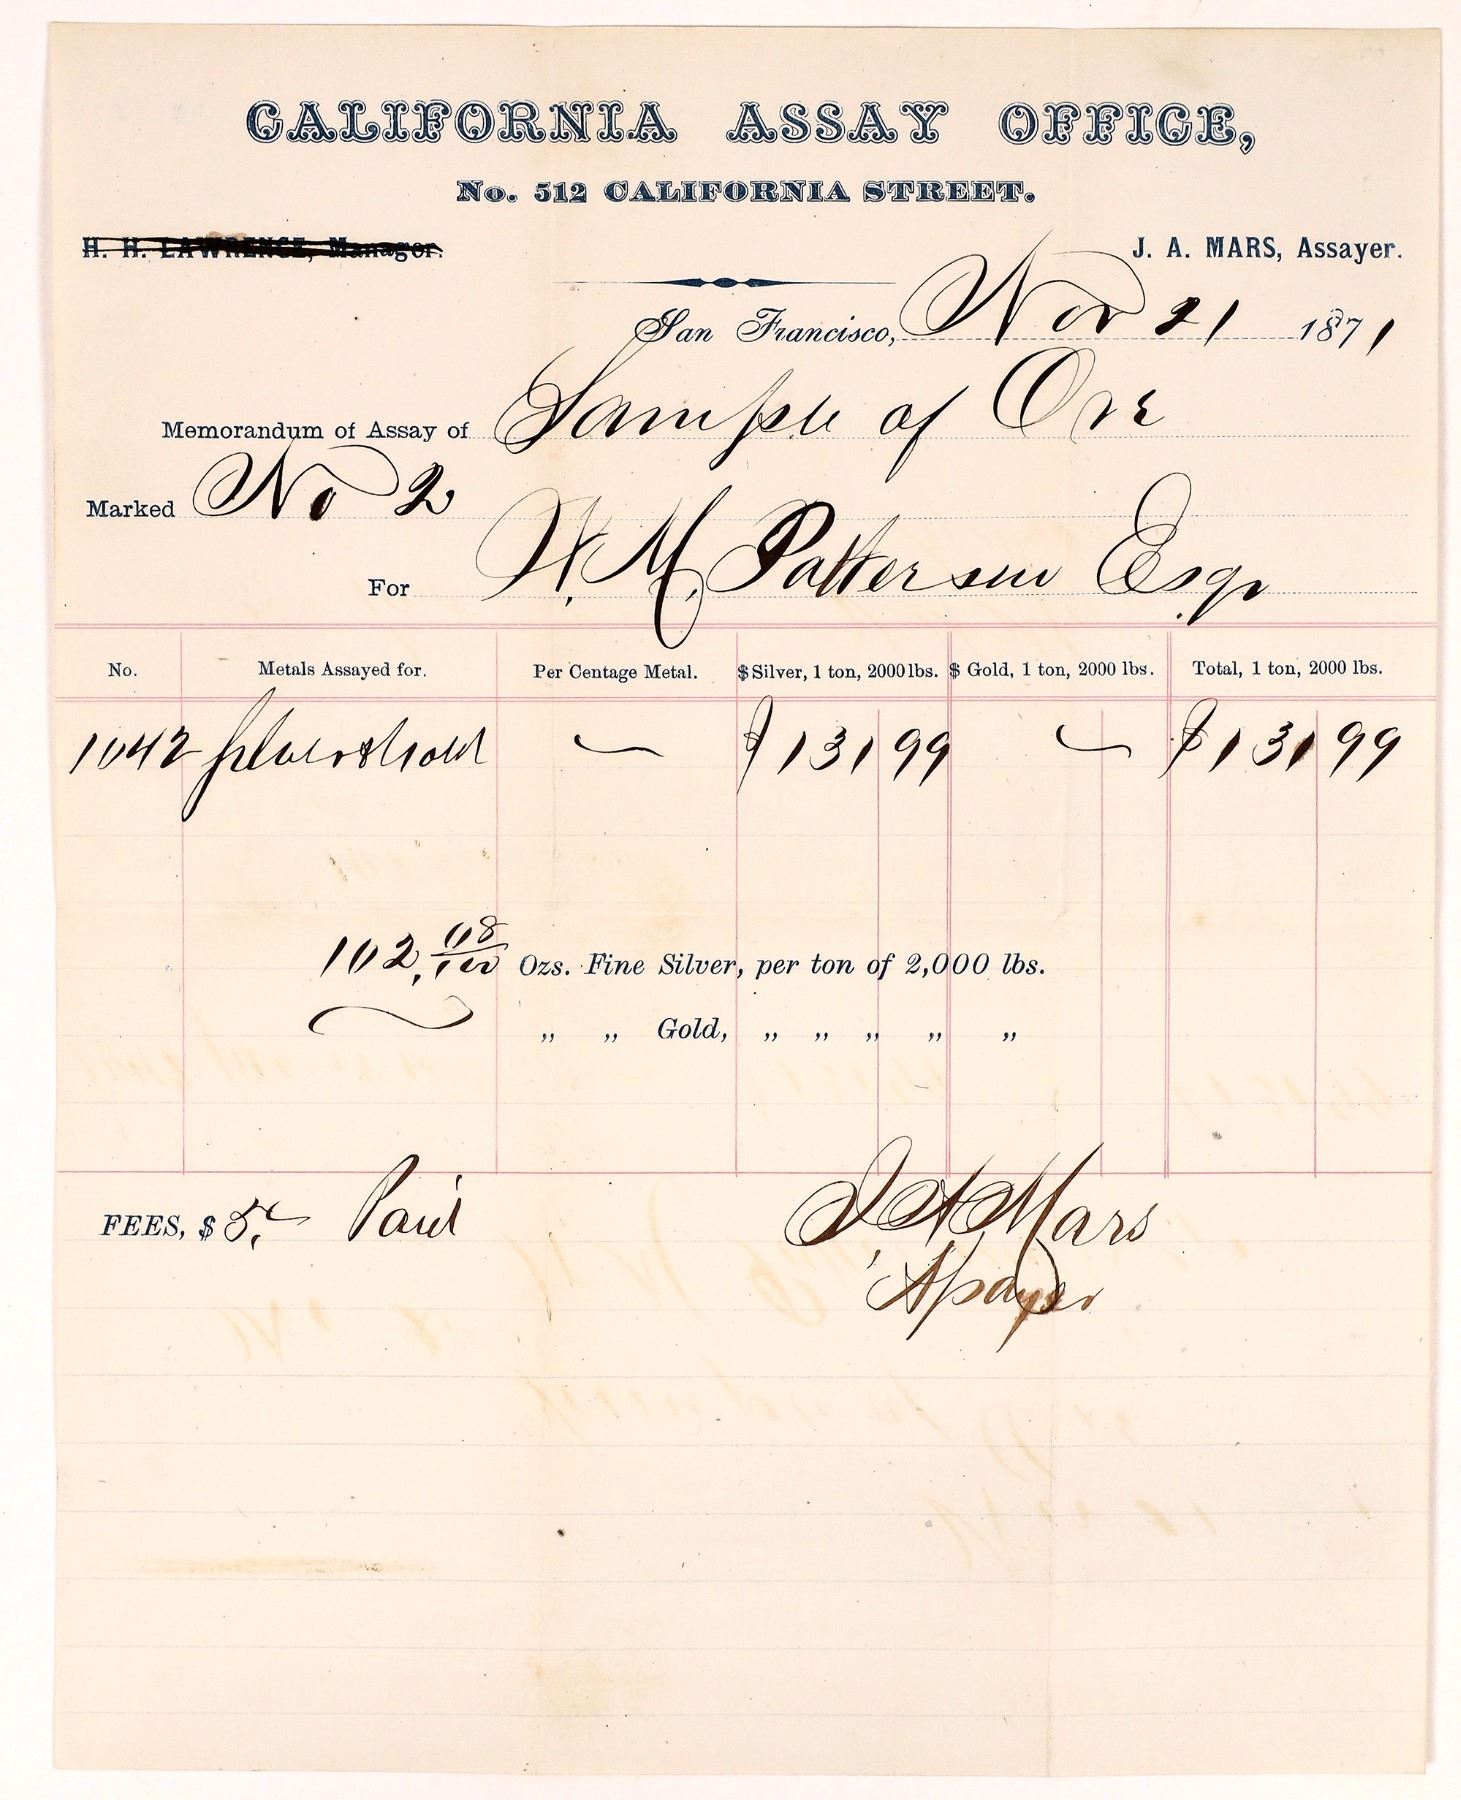 CALIFORNIA ASSAY OFFICE,
No. 512 CALIFORNIA STREET.
H. H. LAWRENCE, Manager. J. A. MARS, Assayer.
San Francisco, Nov 21 1871
Memorandum of Assay of Sample of Ore
Marked No 2
For W. M. Patterson Esqr
No. Metals Assayed for. Per Centage Metal. $ Silver, 1 ton, 2000 lbs. $ Gold, 1 ton, 2000 lbs. Total, 1 ton, 2000 lbs.
1042 Silver & Gold — $131 99 — $131 99
102. 08/100 Ozs. Fine Silver, per ton of 2,000 lbs.
— „ „ Gold, „ „ „ „ „
FEES, $ 5. — Paid J A Mars
Assayer